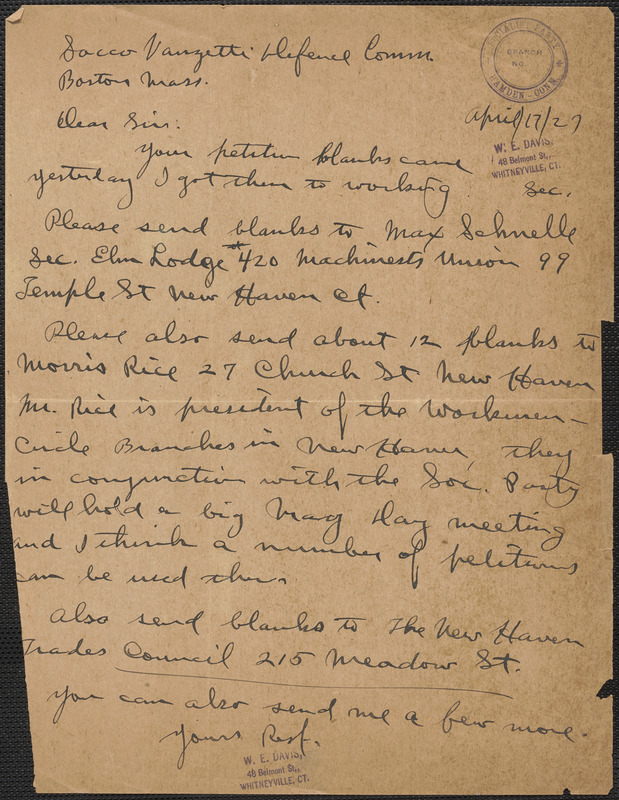 SOCIALIST PARTY
BRANCH
NO.
HAMDEN - CONN.
Sacco Vanzetti Defence Comm.
Boston Mass.
April/17/27
Dear Sir:
W. E. DAVIS,
48 Belmont St.,
WHITNEYVILLE, CT.
Your petition blanks came
yesterday I got them to working
Sec.
Please send blanks to Max Schnelle
Sec. Elm Lodge #420 Machinests Union 99
Temple St New Haven Ct.
Please also send about 12 blanks to
Morris Rice 27 Church St New Haven
Mr. Rice is president of the Workmen-
Circle Branches in New Haven, they
in conjunction with the Soc. Party
will hold a big May Day meeting
and I think a number of petitions
can be used then.
Also send blanks to The New Haven
Trades Council 215 Meadow St.
You can also send me a few more.
Yours Resp.
W. E. DAVIS,
48 Belmont St.,
WHITNEYVILLE, CT.